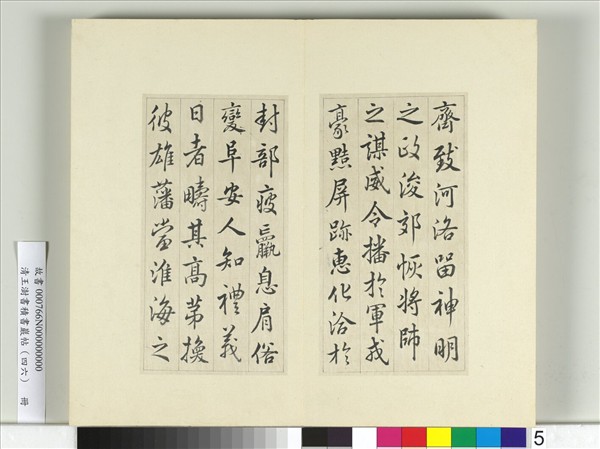 齊致河洛留神明
之政浚郊恢將帥
之謀威令播於軍戎
豪黠屏跡惠化洽於
封部疲羸息肩俗
變阜安人知禮義
日者疇其高第換
彼雄藩當淮海之
故書000766N00000000
清王澍書積書巖帖(四六) 冊
5